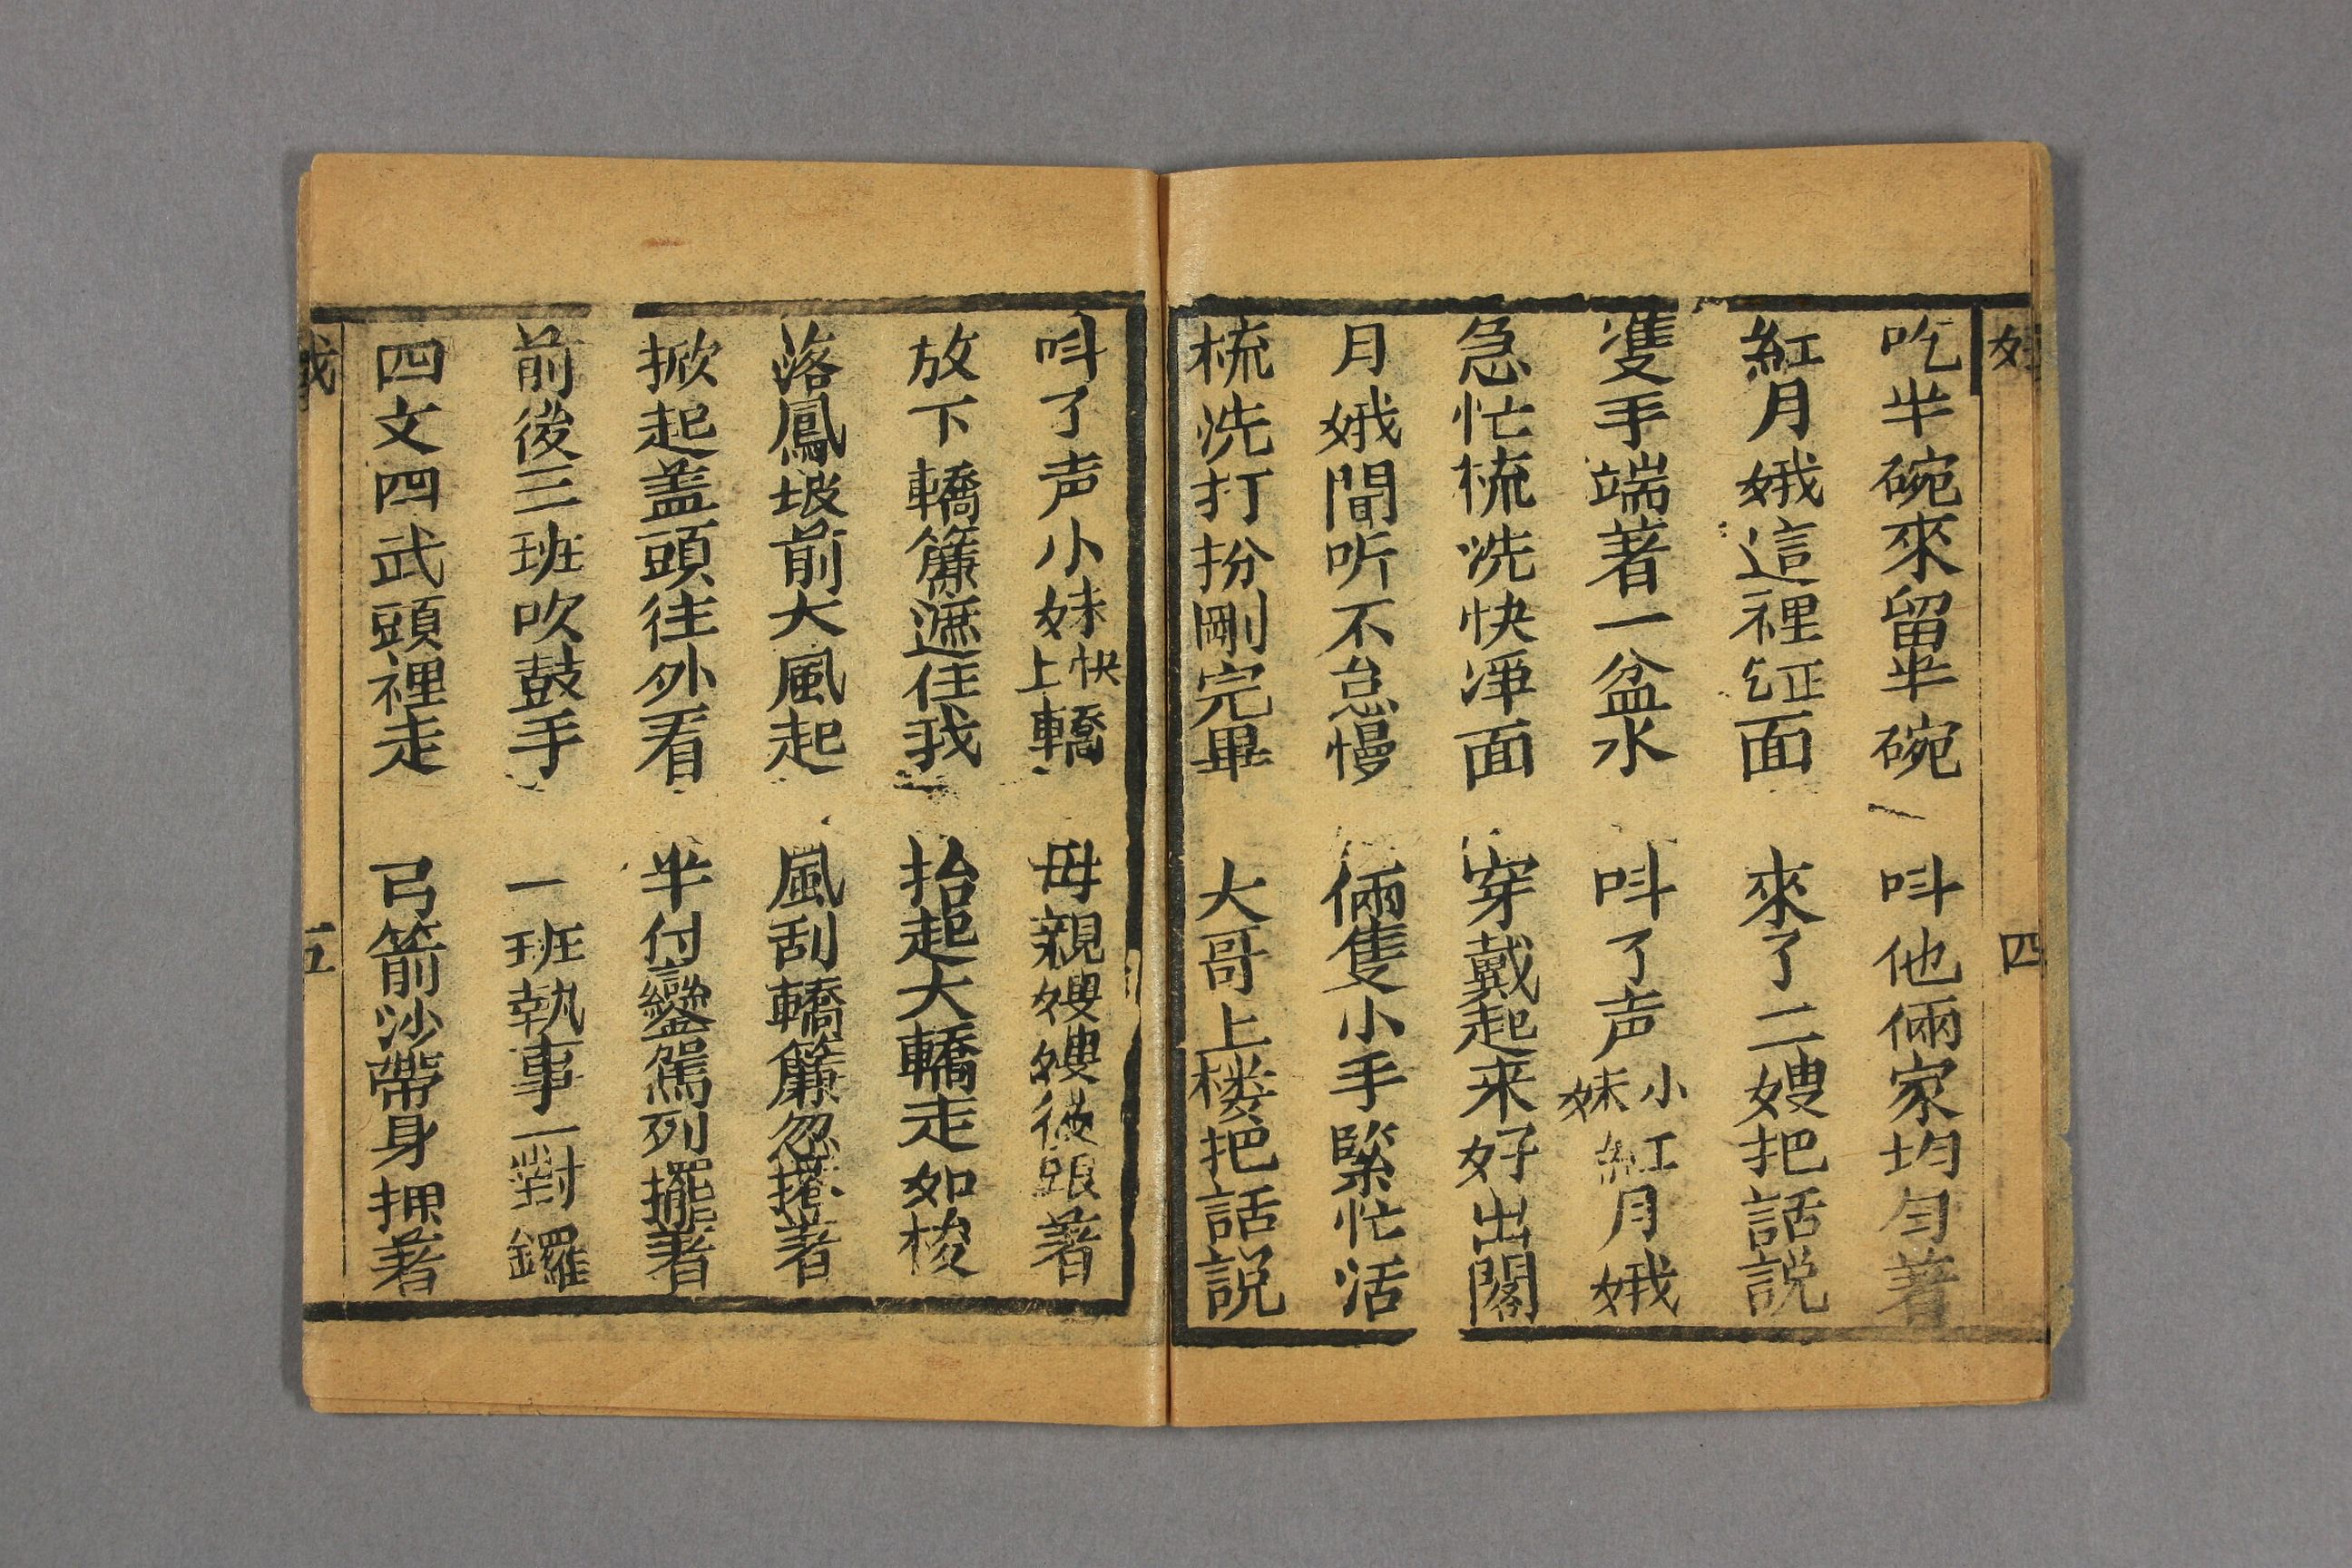 吃半碗來留半碗 呌他倆家均勻著
紅月娥這裡缸面 來了二嫂把話説
隻手端著一盆水 呌了声小妹紅月娥
急忙梳洗快淨面 穿戴起来好出閣
月娥聞听不怠慢 倆隻小手緊忙活
梳洗打扮剛完畢 大哥上楼把話説
四
呌了声小妹快上轎 母親嫂嫂後跟著
放下轎簾遮住我 抬起大轎走如梭
落鳳坡前大風起 風刮轎簾忽搭著
掀起盖頭往外看 半付鑾駕列擺著
前後三班吹鼓手 一班執事一對鑼
四文四武頭裡走 弓箭沙帶身押著
五